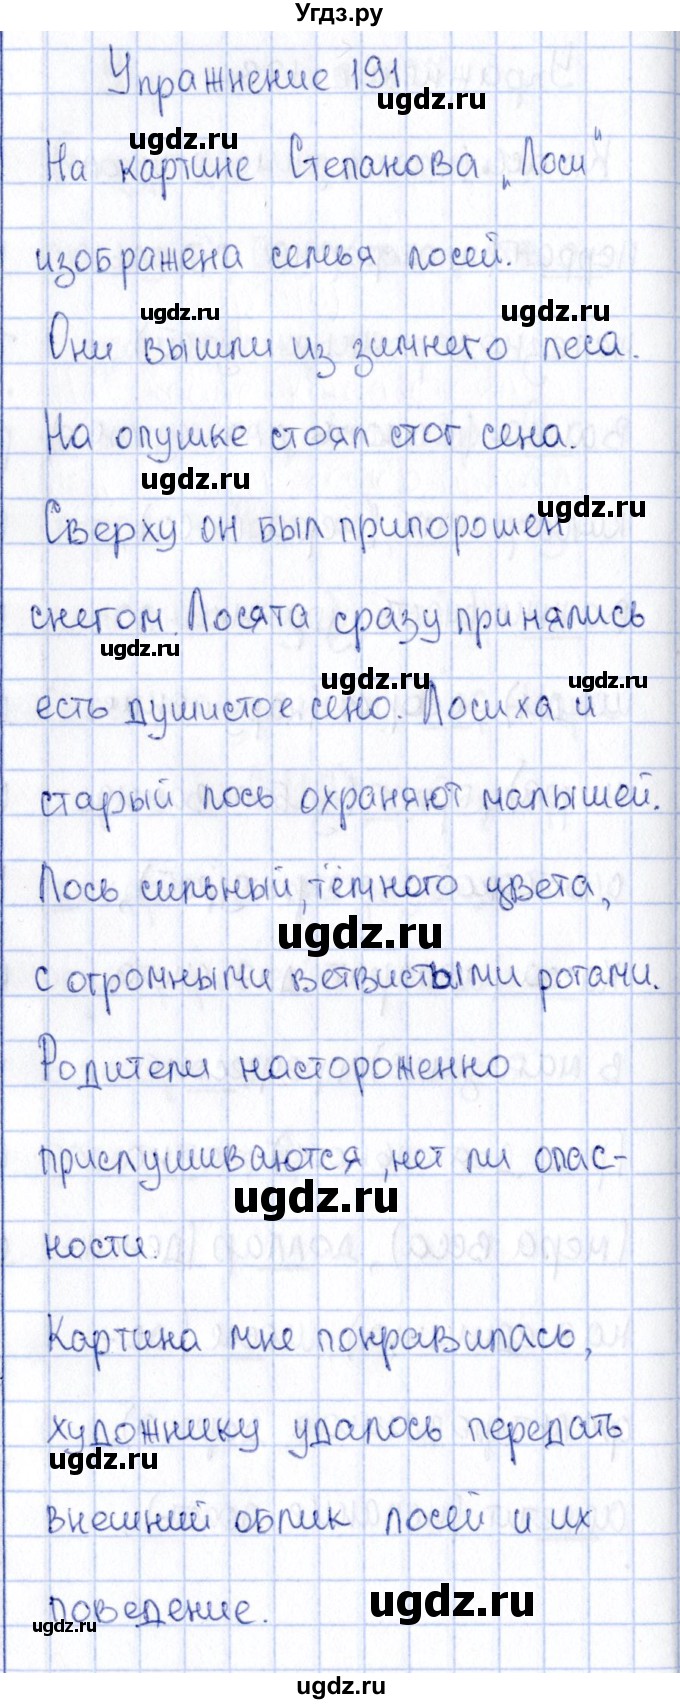 Угдз.ру
Упражнение 191
ugdz.ru
ugdz.ru
На картине Степанова „Лоси"
изображена семья лосей.
ugdz.ru
ugdz.ru
Они вышли из зимнего леса.
На опушке стоял стог сена.
ugdz.ru
ugdz.ru
Сверху он был припорошен
снегом. Лосята сразу принялись
ugdz.ru
ugdz.ru
ugdz.ru
есть душистое сено. Лосиха и
старый лось охраняют малышей.
Лось сильный, тёмного цвета,
ugdz.ru
с огромными ветвистыми рогами.
Родители настороженно
прислушиваются, нет ли опас-
ugdz.ru
ности.
Картина мне понравилась,
художнику удалось передать
ugdz.ru
внешний облик лосей и их
поведение.
ugdz.ru
ugdz.ru
ugdz.ru